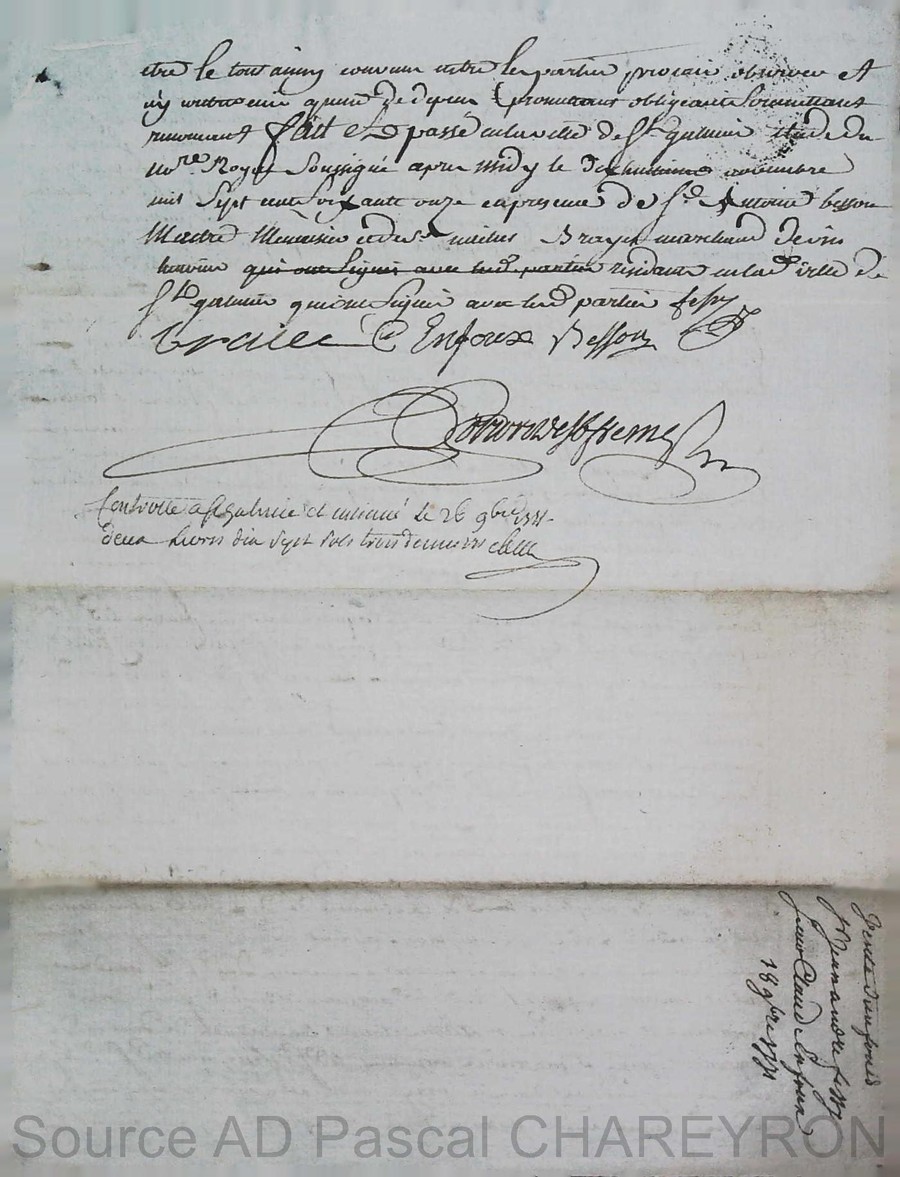 être le tout ainsy convenu entre les parties promis observer et
n'y contrevenir a peine de depens promettants obligeants soumettants
renonceant fait et passé en la ville de St galmier étude du
nore Royal soussigné apres midy le dixhuitieme novembre
mil sept cent soixante onze en presence de sr Antoine besson
Maitre Menuisier et de sr marchand de vin
qui ont signés avec lesd parties residants en lad ville de
St galmier qui ont signés avec lesd parties fessy
C Enfoux Besson
Controllé a St galmier et insinué le 26 9bre 1771
deux livres dix sept sols trois deniers
Vente d'un fonds
Sr Jean andré fessy
Jean Claude Enfoux
18 9bre 1771
Source AD Pascal CHAREYRON